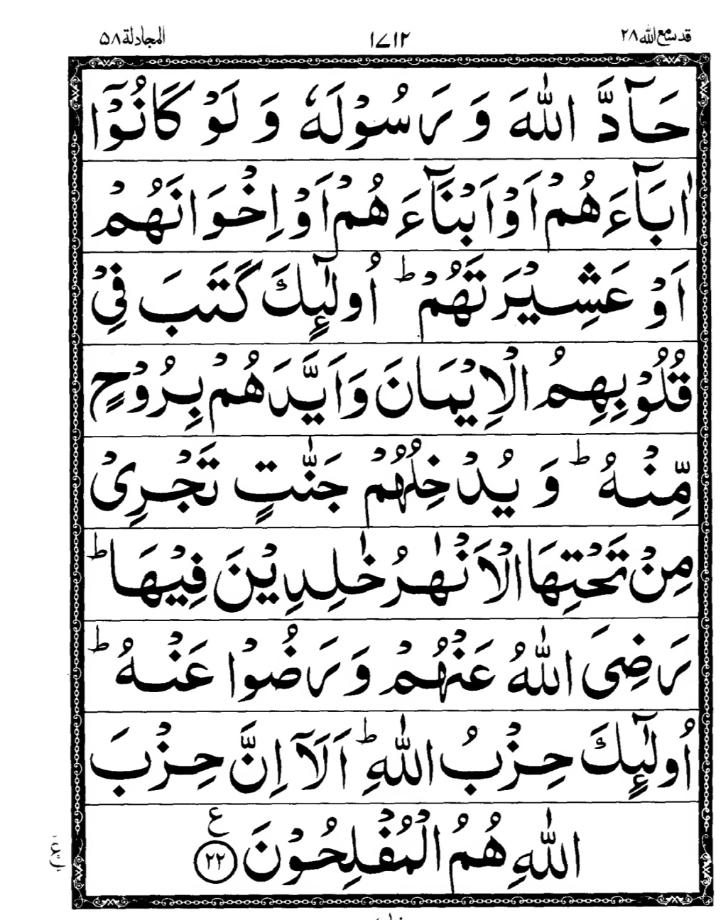 المجادلة ٥٨ ١٧١٢ قد سمع الله ٢٨
حَآدَّ اللّٰهَ وَ رَسُوْلَهٗ وَ لَوْ كَانُوْۤا
اٰبَآءَهُمْ اَوْ اَبْنَآءَ هُمْ اَوْ اِخْوَانَهُمْ
اَوْ عَشِيْرَتَهُمْ ؕ اُولٰٓئِكَ كَتَبَ فِيْ
قُلُوْبِهِمُ الْاِيْمَانَ وَاَيَّدَهُمْ بِرُوْحٍ
مِّنْهُ ؕ وَ يُدْخِلُهُمْ جَنّٰتٍ تَجْرِيْ
مِنْ تَحْتِهَا الْاَنْهٰرُ خٰلِدِيْنَ فِيْهَا ؕ
رَضِيَ اللّٰهُ عَنْهُمْ وَ رَضُوْا عَنْهُ ؕ
اُولٰٓئِكَ حِزْبُ اللّٰهِ ؕ اَلَاۤ اِنَّ حِزْبَ
اللّٰهِ هُمُ الْمُفْلِحُوْنَ ع ٢٢